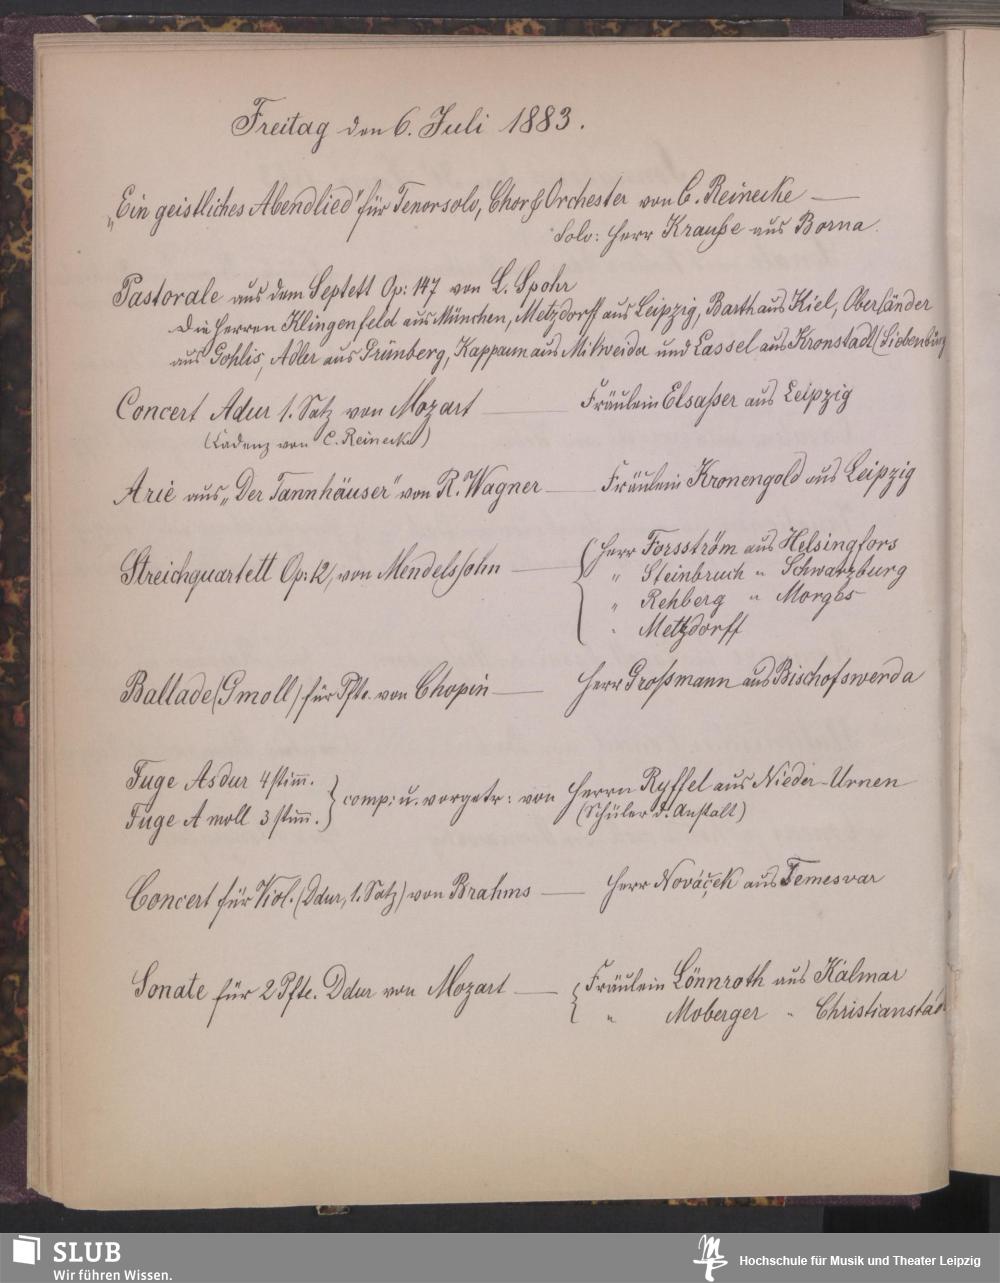 Freitag den 6. Juli 1883.
„Ein geistliches Abendlied" für Tenorsolo, Chor & Orchester von C. Reinecke —
Solo: Herr Krauße aus Borna.
Pastorale aus dem Septett Op: 147 von L. Spohr
Die Herren Klingenfeld aus München, Metzdorff aus Leipzig, Barth aus Kiel, Oberländer
aus Gohlis, Adler aus Grünberg, Kappaun aus Mitweida und Cassel aus Kronstadt (Siebenbürg
Concert Adur 1. Satz von Mozart — Fräulein Elsaßer aus Leipzig
(Cadenz von C. Reinecke)
Arie aus „Der Tannhäuser" von R. Wagner — Fräulein Kronengold aus Leipzig
Streichquartett Op: 12, von Mendelssohn — Herr Forsström aus Helsingfors
" Steinbruch " Schwarzburg
" Rehberg " Morges
" Metzdorff
Ballade (Gmoll) für Pfte. von Chopin — Herr Großmann aus Bischofswerda
Fuge Asdur 4 stim̅.
Fuge A moll 3 stim̅. } comp: u. vorgetr: von Herrn Ryffel aus Nieder-Urnen
(Schüler d. Anstalt)
Concert für Viol. (Ddur, 1. Satz) von Brahms — Herr Nováček aus Temesvar
Sonate für 2 Pfte. Ddur von Mozart — { Fräulein Lönnroth aus Kalmar
" Moberger " Christianstad
SLUB
Wir führen Wissen.
Hochschule für Musik und Theater Leipzig